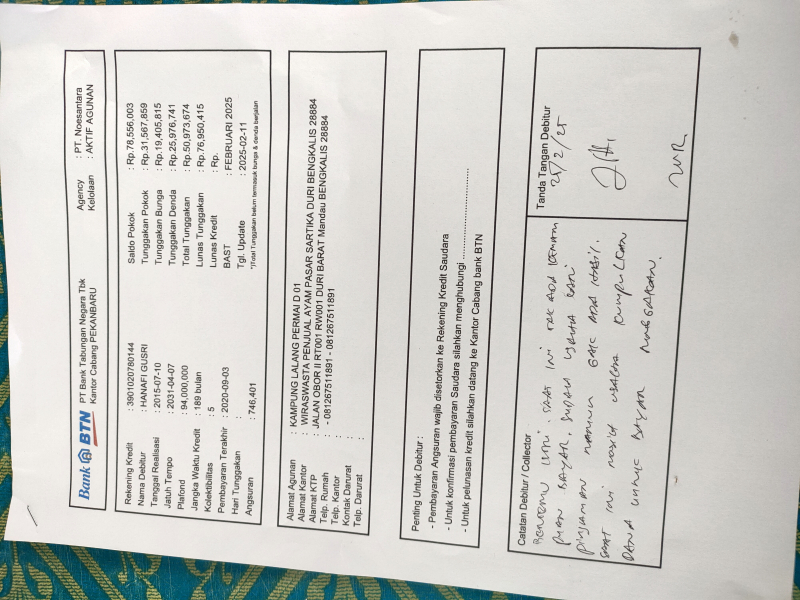 Bank BTN
PT Bank Tabungan Negara Tbk
Kantor Cabang PEKANBARU
Agency : PT. Noesantara
Kelolaan : AKTIF AGUNAN
Rekening Kredit : 3901020780144
Nama Debitur : HANAFI GUSRI
Tanggal Realisasi : 2015-07-10
Jatuh Tempo : 2031-04-07
Plafond : 94,000,000
Jangka Waktu Kredit : 189 bulan
Kolektibilitas : 5
Pembayaran Terakhir : 2020-09-03
Hari Tunggakan :
Angsuran : 746,401
Saldo Pokok : Rp.78,556,003
Tunggakan Pokok : Rp.31,567,859
Tunggakan Bunga : Rp.19,405,815
Tunggakan Denda : Rp.25,976,741
Total Tunggakan : Rp.50,973,674
Lunas Tunggakan : Rp.76,950,415
Lunas Kredit : Rp.
BAST : FEBRUARI 2025
Tgl. Update : 2025-02-11
*)Total Tunggakan belum termasuk bunga & denda berjalan
Alamat Agunan : KAMPUNG LALANG PERMAI D 01
Alamat Kantor : WIRASWASTA PENJUAL AYAM PASAR SARTIKA DURI BENGKALIS 28884
Alamat KTP : JALAN OBOR II RT001 RW001 DURI BARAT Mandau BENGKALIS 28884
Telp. Rumah : - 081267511891 - 081267511891
Telp. Kantor :
Kontak Darurat :
Telp. Darurat :
Penting Untuk Debitur :
- Pembayaran Angsuran wajib disetorkan ke Rekening Kredit Saudara
- Untuk konfirmasi pembayaran Saudara silahkan menghubungi
- Untuk pelunasan kredit silahkan datang ke Kantor Cabang bank BTN
Catatan Debitur / Collector
BERTEMU . SAAT INI TAK ADA
BAYAR. SUDAH USAHA CARI
PINJAMAN NAMUN GAK ADA HASIL.
SAAT INI MASIH USAHA KUMPULKAN
DANA UNTUK BAYAR TUNGGAKAN.
Tanda Tangan Debitur
25/2/25